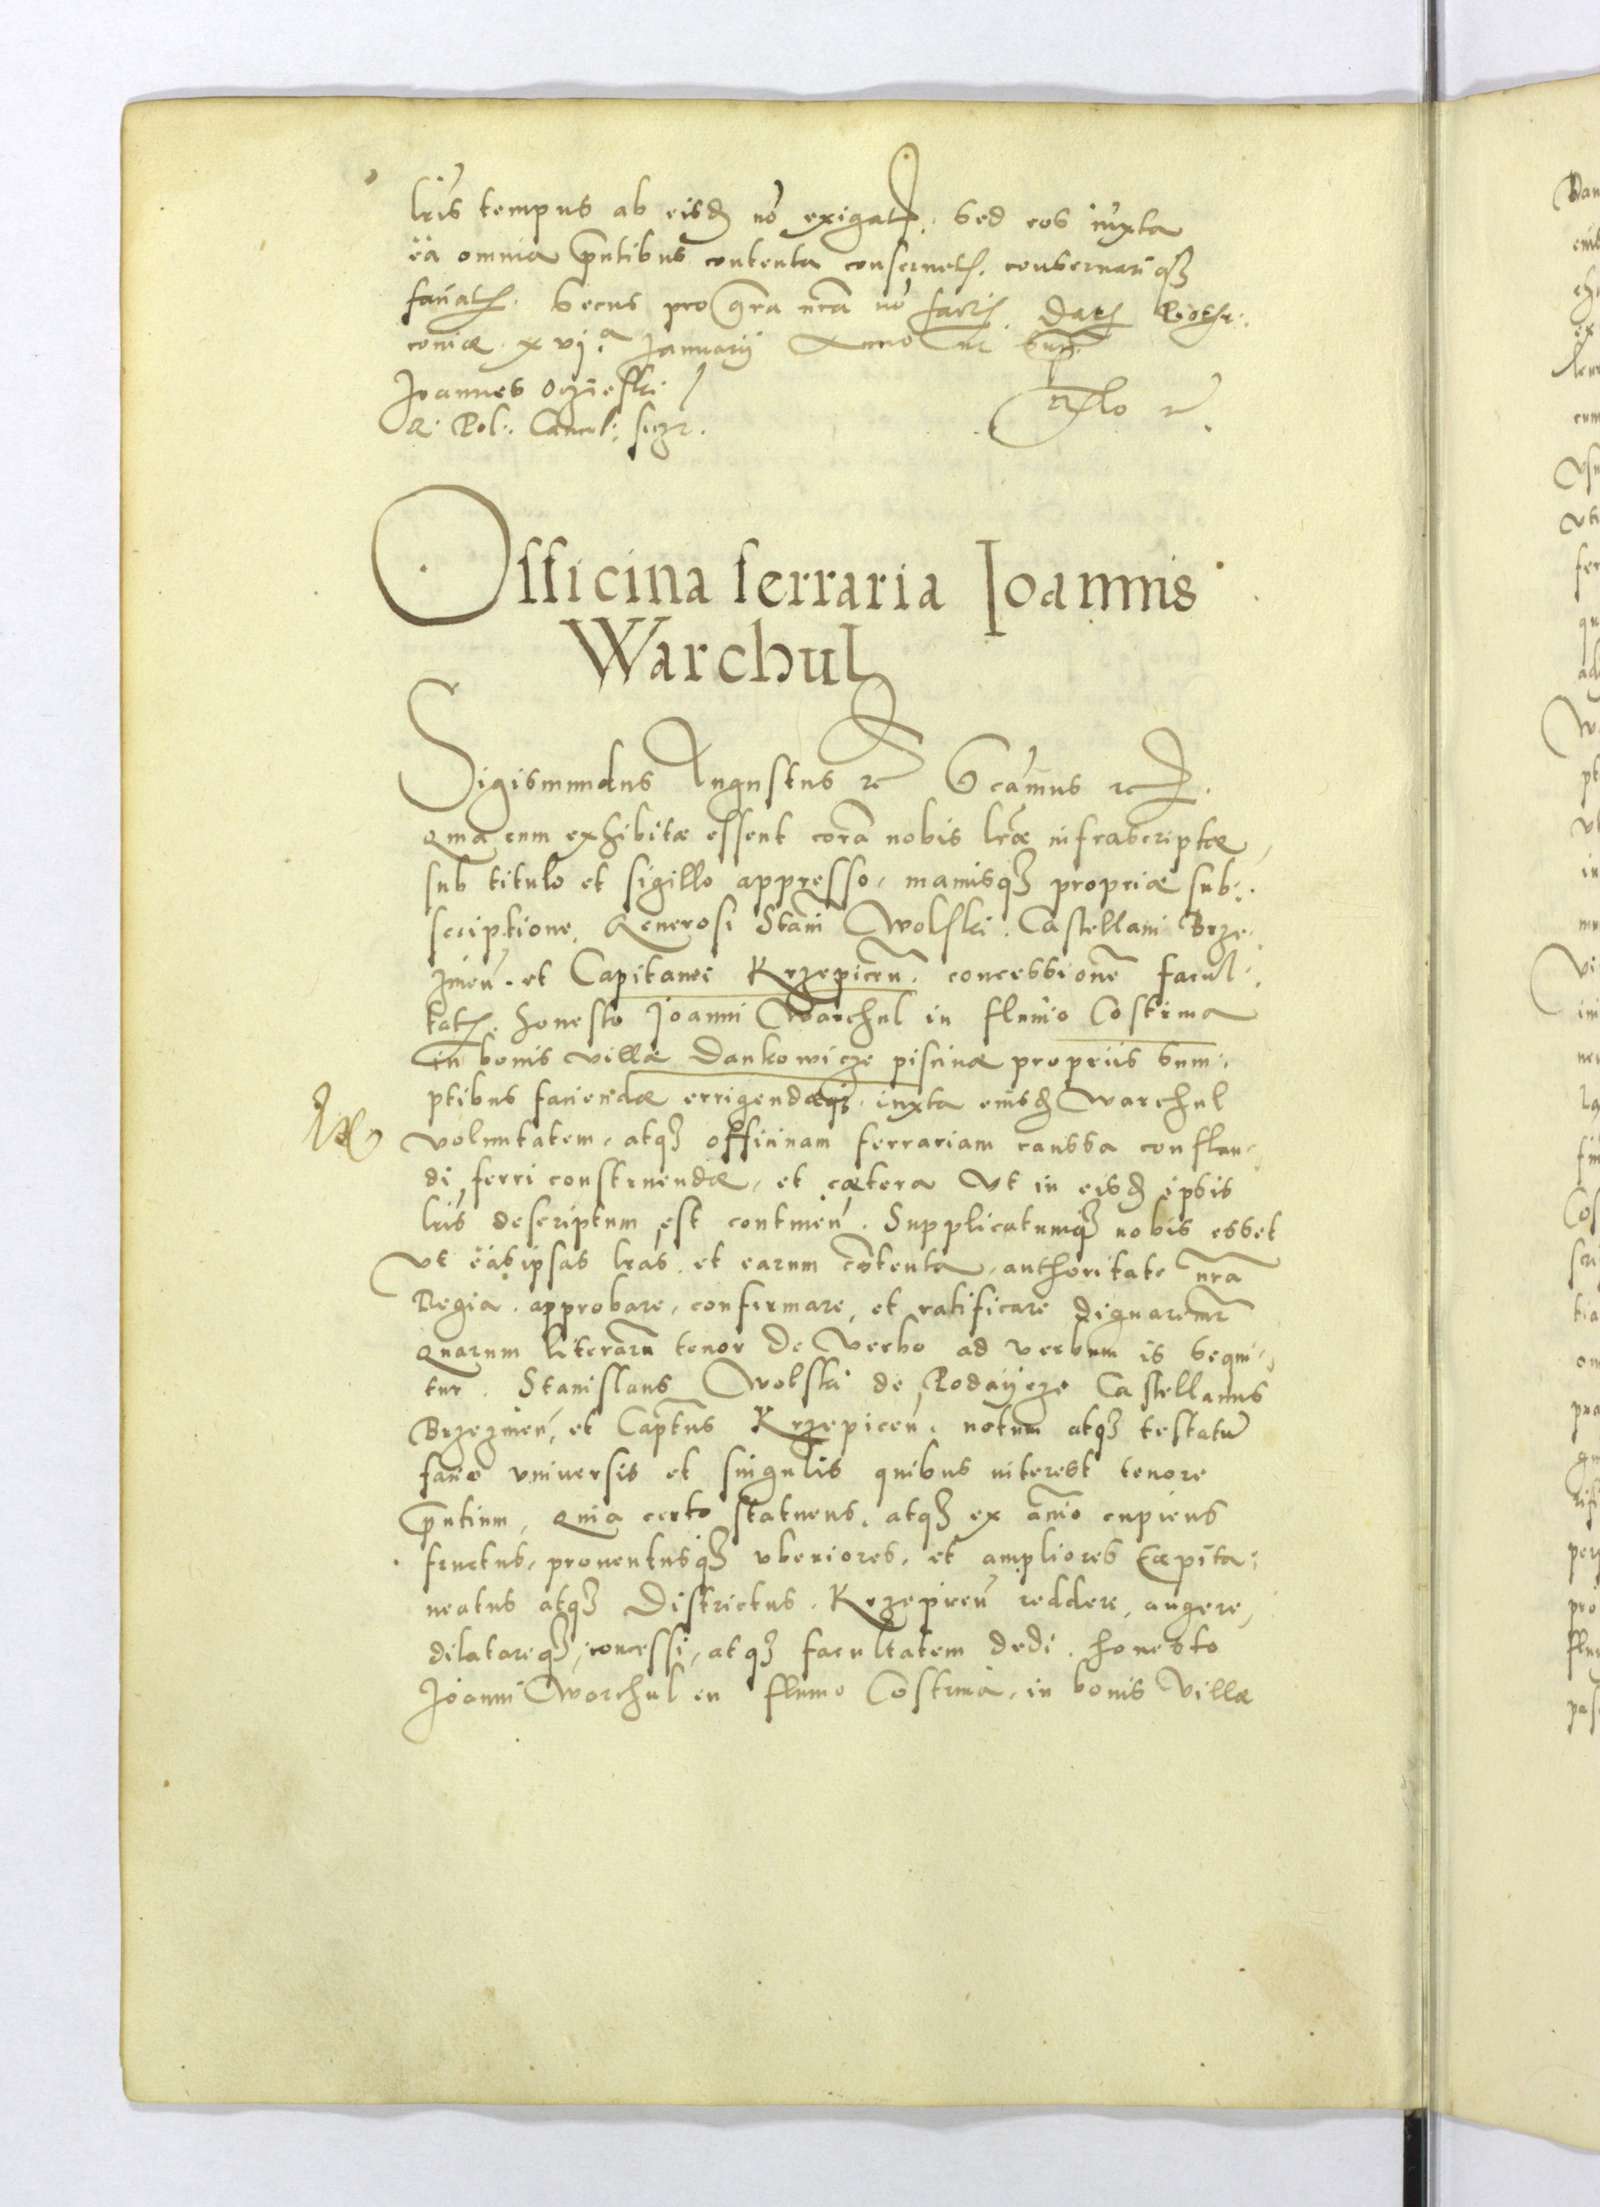 lr̃is tempus ab eisđ nõ exigatis. Sed eos iuxta
ea omnia p̃ntibus contenta conseruetis, conseruariqꝫ
faciatis. Secus pro gr̃a nr̃a nõ factꝫ. Datꝫ Piotr:
couiæ xvj.ª Januarij Anno ut sup.
Joannes Ocziesski
R: Pol: Cancel: sczr.
Officina ferraria Ioannis
Warchul
Sigismundus Augustus &c Sc̃amus &c.
Quia cum exhibitæ essent corã nobis lr̃æ infrascriptæ,
sub titulo et sigillo appresso, manusqꝫ propriæ sub:
scriptione, Generosi Stañi Wolski. Castellani Brze:
zineñ. et Capitanei Krzepiceñ. concessionẽ facul:
tatꝫ. honesto Joanni Warchul in fluuio Costrina
in bonis villæ Dankowicze piscinæ propriis sum:
ptibus faciendæ errigendæqꝫ. iuxta eiusđ Warchul
voluntatem, atqꝫ officinam ferrariam caussa conflan:
di ferri construendæ, et cætera Ut in eisđ ipsis
lr̃is descriptum est contineñ. Supplicatumqꝫ nobis esset
Ut eas ipsas lras. et earum cõtenta, authoritate nr̃a
Regia. approbare, confirmare, et ratificare dignaremur
Quarum literarũ tenor de verbo ad verbum is sequi:
tur. Stanislaus Wolski de Podayeze Castellanus
Brzezineñ, et Capt̃us Krzepiceñ. notum atqꝫ testatũ
facio vniuersis et singulis quibus interest tenore
p̃ntium, Quia certo statuens, atqꝫ ex ãnio cupiens
fructus, prouentusqꝫ vberiores, et ampliores Capita:
neatus atqꝫ Districtus. Krzepiceñ reddere, augere,
dilatareqꝫ, concessi, atqꝫ facultatem dedi. honesto
Joanni Warchul in fluuio Costrina, in bonis Villæ